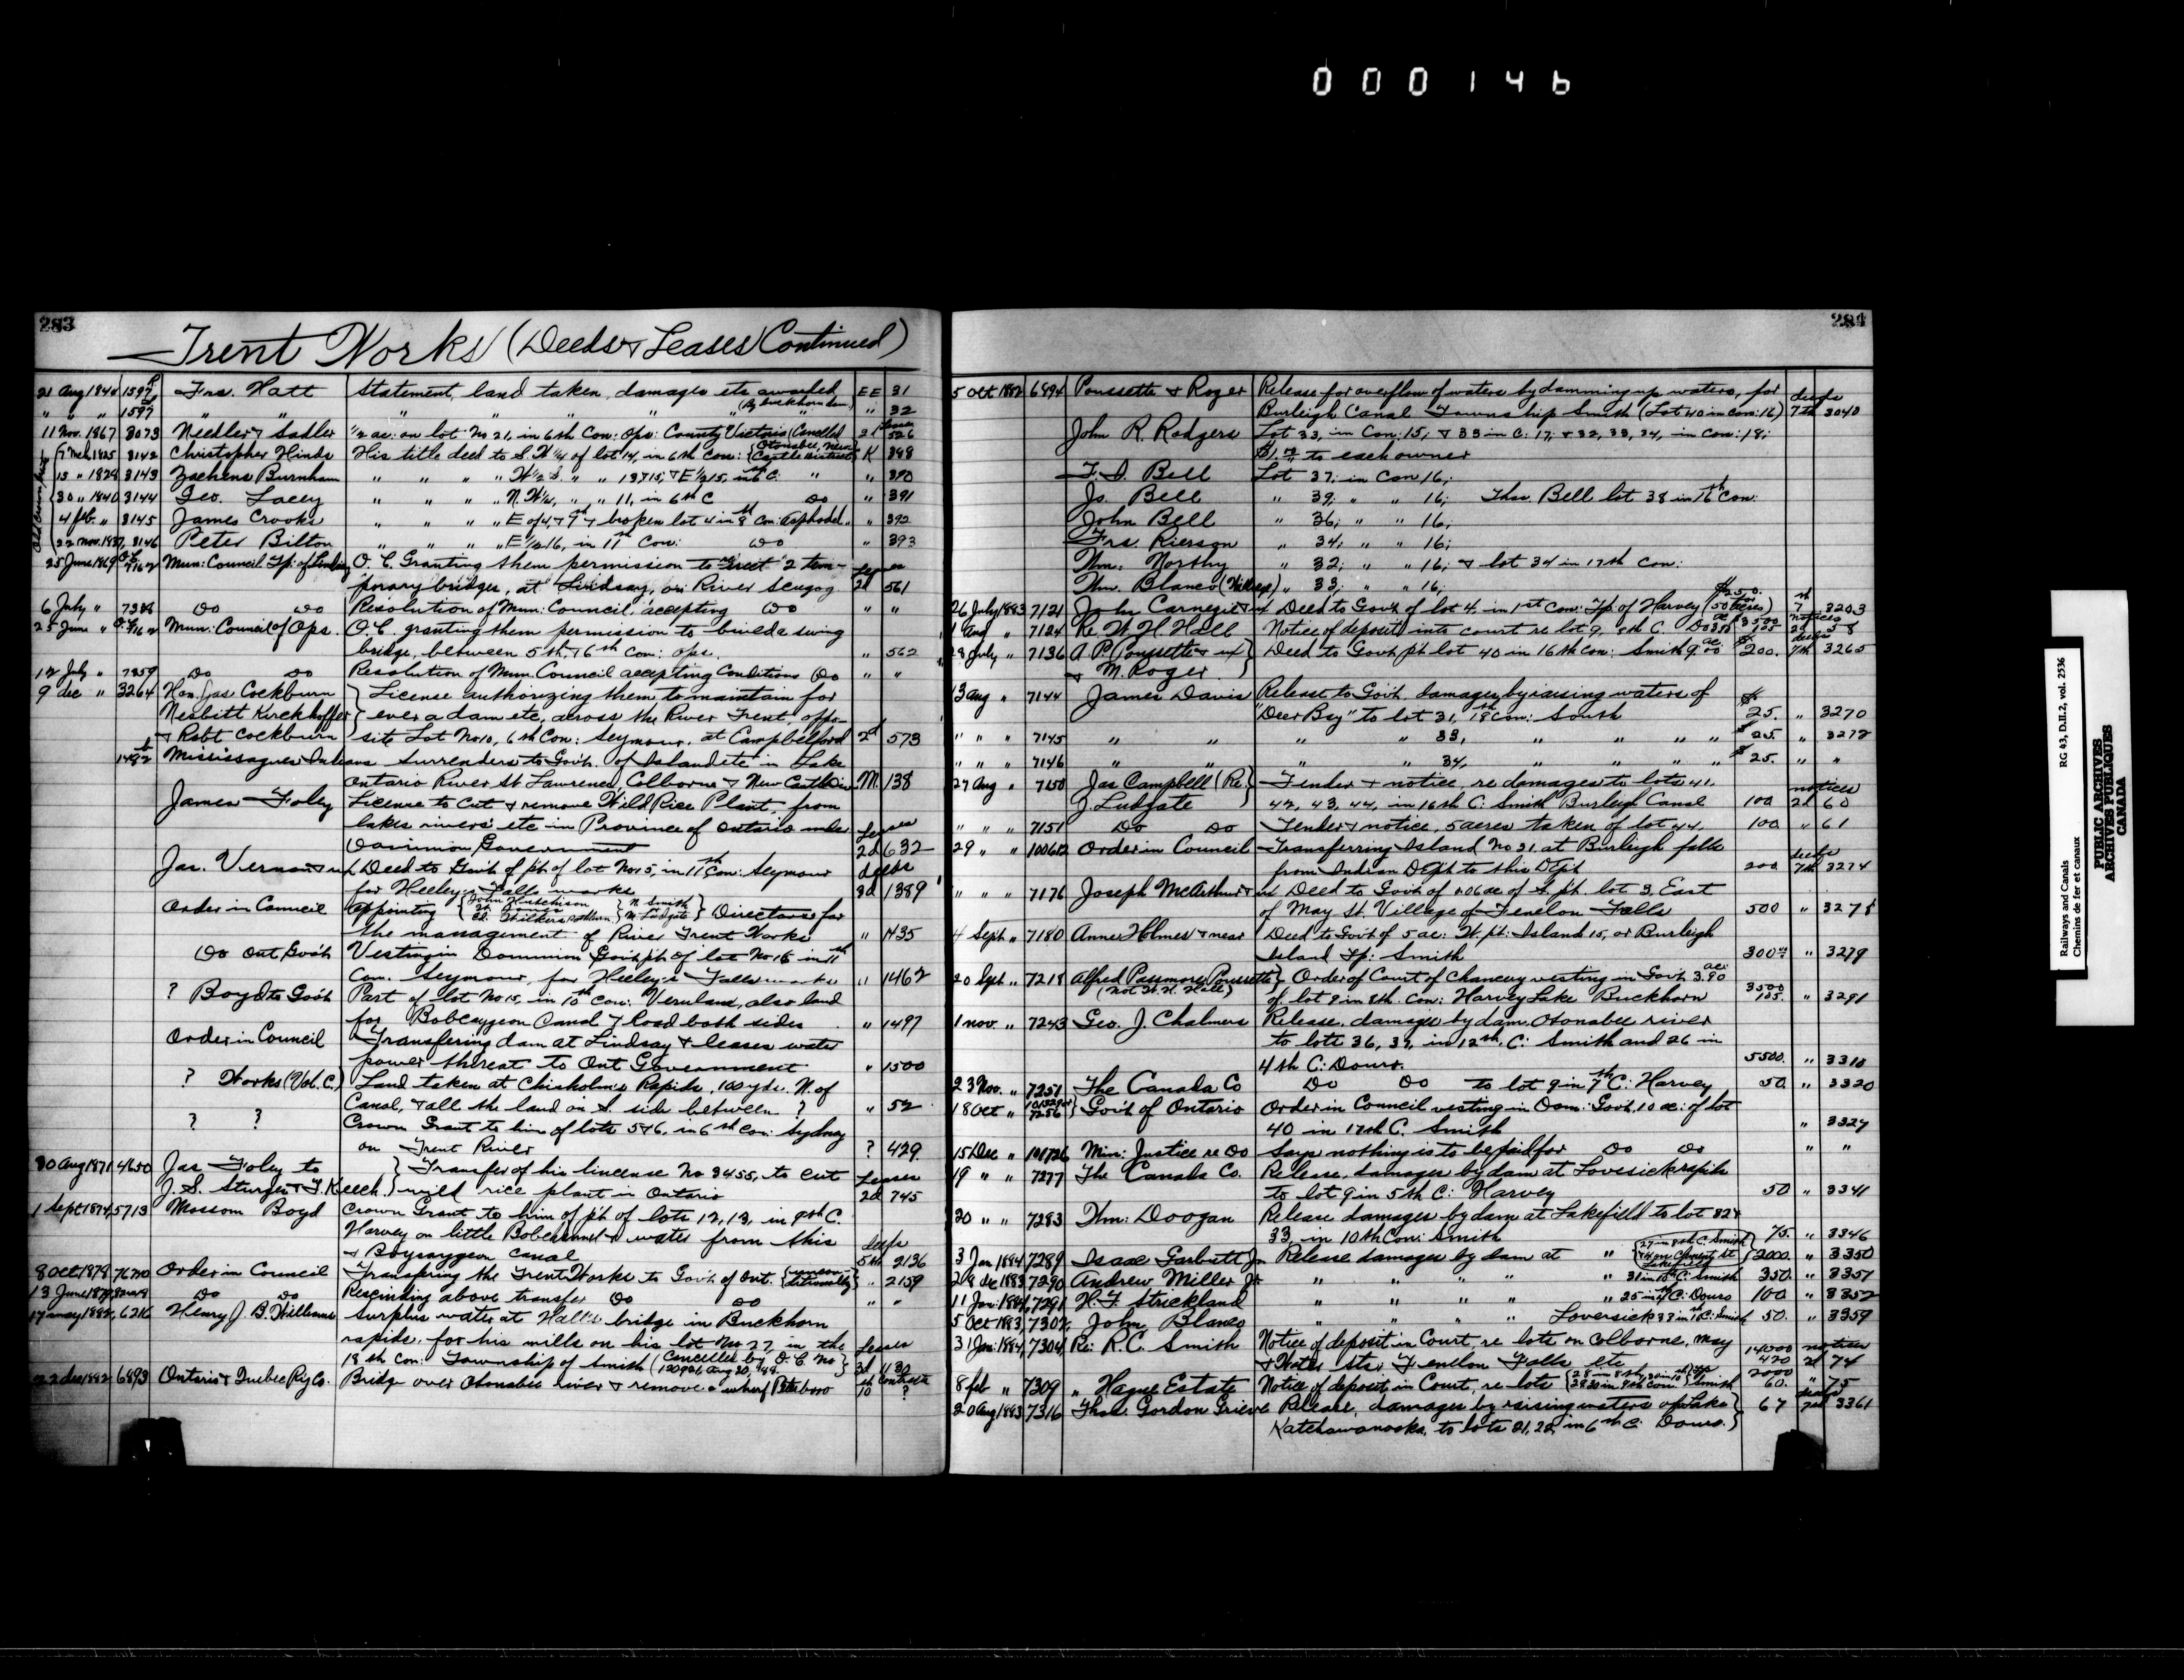 000146
283
Trent Works (Deeds & Leases Continued)
21 Aug 1844 1597 Frs. Hatt Statement, land taken, damages etc awarded EE 31
" " " 1597 " " " " " " " (By buckhorn dam) " 32
11 Nov. 1867 3073 Needler & Sadler 1/2 ac: on lot: No 21, in 6th Con: Ops: County Victoria (Cancelled) 2d Leases 526
3142 Christopher Hinds His title deed to S.W 1/4 of lot 14, in 6th Con: K
15 " 1828 3143 Zacheus Burnham " " " " W 1/2 S. " " " 390
30 " 1840 3144 Geo. Lacey " " " " N.W 1/4, " " 11, in 6th C Do " 391
4 feb. " 3145 James Crooks " " " " E of 4, & 9th & broken lot 4 in 8th Con: Asphodel " 392
22 nov. 1837, 3146 Peter Bilton " " " " E 1/2 16, in 11th Con: Do " 393
25 June 1869 Mun: Council Tp: of Lindsay O.C. Granting them permission to erect 2 tem-
porary bridges, at Lindsay, on River Scugog Leases 2d 561
6 July " Do Do Resolution of Mun: Council, accepting Do " "
25 June " Mun: Council of Ops. O.C. granting them permission to build a swing
bridge, between 5th, & 6th Con: Ops. " 562
12 July " 7359 Do Do Resolution of Mun. Council accepting Conditions Do " "
9 dec " 3264 Hon. Jas Cockburn } License authorizing them to maintain for
Nesbitt Kirchhoffer } ever a dam etc, across the River Trent, oppo-
& Robt Cockburn } site Lot No 10, 6th Con: Seymour, at Campbelford 2d 573
Mississagua Indians Surrender to Gov't. of Islands etc in Lake
Ontario River St Lawrence, Colborne & New Castle M. 138
James Foley License to Cut & remove Wild Rice Plant, from
lakes rivers etc in Province of Ontario under
Dominion Government Leases 2d 632
Jas. Vernon & ux Deed to Gov't of pt. of lot No 15, in 11th Con: Seymour
for Heeley's Falls works deeds 3d 1389
Order in Council appointing { John Hutchison } N. Smith } Directors for
M. Ludgate
the management of River Trent Works " 1435
Do Ont, Gov't Vesting in Dominion Gov't pt. of lot No 15 in 11th
Con. Seymour, for Heeley's Falls works " 1462
? Boyd to Gov't Part of lot No 15, in 10th Con: Verulam, also land
for Bobcaygeon Canal & Road both sides " 1497
Order in Council Transfering dam at Lindsay & leases water
power thereat to Ont Government " 1500
? Works (Vol. C.) Land taken at Chisholm's Rapids, 100 yds. N. of
Canal, & all the land on S. side between ? " 52
? ? Crown Grant to him of lots 5 & 6, in 6th Con: Sydney
on Trent River ? 429
30 Aug 1871, 4650 Jas Foley to } Transfer of his lincense No 3455, to cut
J. S. Sturges & T. Keech. } wild rice plant in Ontario Leases 2d 745
1 Sept 1874, 5713 Mossom Boyd Crown Grant to him of pt. of lots 12, 13, in 9th C.
Harvey on little Bob channel & water from this
& Boycaygeon canal deeds 5th 2136
8 Oct 1878 76740 Order in Council Transfering the Trent Works to Gov't of Ont. { uncon-ditionally } " 2159
13 June 1879 Do Do Rescinding above transfer Do Do " "
17 may 1882, 6216 Henry J. B. Williams Surplus water at Hall's bridge in Buckhorn
rapids, for his mills on his lot No 27, in the
18th Con: Township of Smith (Cancelled by O.C. No Leases 3d 1130
22 dec 1882 6893 Ontario & Quebec Ry Co. Bridge over Otonabee river & remove a wharf Peterboro Contracts 10 ?
284
5 Oct 1882 6894 Poussette & Roger Release for overflow of waters by damming up waters, for
Burleigh Canal Township Smith (Lot 40 in con: 16) deeds 7th 3040
John R. Rodgers Lot 33, in Con: 15; & 33 in C. 17; & 32, 33, 34, in Con: 18;
$1. to each owner
F. D. Bell Lot 37; in Con 16;
Js. Bell " 39; " " 16; Thos. Bell lot 38 in 16th Con:
John Bell " 36; " " 16;
Frs. Rierson " 34; " " 16;
Wm: Northy " 32; " " 16; & lot 34 in 17th Con:
Wm. Blanco " 33; " " 16;
26 July 1883 7121 John Carnegie & ux Deed to Gov't of lot 4, in 1st Con: Tp. of Harvey (50 acres) $250. 7th 3203
1 Aug " 7124 Re. W. H. Hall Notice of deposit into court re lot 9, 8th C. Do notices 2d 58
28 July " 7136 A. P. Poussette & ux } Deed to Gov't pt lot 40 in 16th Con: Smith $200. deeds 7th 3265
& M. Roger }
13 aug " 7144 James Davis Release to Gov't. damages, by raising waters of
"Deer Bay" to lot 31, 18th Con: South $25. " 3270
" " " 7145 " " " " 33, " " " " $25. " 3272
" " " 7146 " " " " 34, " " " " $25. " "
27 Aug " 7150 Jas Campbell (Re. } Tender & notice, re damages to lots 41,
J Ludgate } 42, 43, 44, in 16th C: Smith Burleigh Canal 100 notices 2d 60
" " " 7151 Do Do Tender & notice, 5 acres taken of lot 44. 100 " 61
29 " " 100612 Order in Council Transferring Island No 31, at Burleigh falls
from Indian Dept to this Dept 200 deeds 7th 3274
" " " 7176 Joseph McArthur & ux Deed to Gov't of S. pt. lot 3, East
of May St. Village of Fenelon Falls 500 " 3278
4 Sept " 7180 Anne Holmes & near Deed to Gov't of 5 ac: W. pt: Island 15, or Burleigh
Island Tp: Smith 300 " 3279
20 Sept " 7218 Alfred Passmore Poussette } Order of Court of Chancery vesting in Gov't 3.90 ac:
(Not W. H. Hall) of lot 9 in 8th. Con: Harvey Lake Buckhorn 3500 105. " 3291
1 nov. " 7243 Geo. J. Chalmers Release, damages by dam, Otonabee river
to lots 36, 37, in 12th. C: Smith and 26 in
4th C: Douro. 5500. " 3310
23 Nov. " 7251 The Canada Co Do Do to lot 9 in 7th C: Harvey 50. " 3320
18 Oct " 7256 } Gov't of Ontario Order in Council vesting in Dom: Gov't, 10 ac: of lot
40 in 17th C. Smith " 3327
15 Dec " 101726 Min: Justice re Do Says nothing is to be paid for Do Do " "
19 " " 7277 The Canada Co. Release, damages by dam at Lovesick rapids
to lot 9 in 5th C: Harvey 50 " 3341
20 " " 7283 Wm: Doogan Release damages by dam at Lakefield to lot 32 &
33, in 10th Con: Smith 75. " 3346
3 Jan 1884 7289 Isaac Garbutt Jr Release damages by dam at " { 27 in 8th C. Smith Lakefield } 2000. " 3350
28 dec 1883 7290 Andrew Miller Jr " " " " " 31 in 10th C. Smith 350. " 3351
11 Jan: 1884, 7291 H. F. Strickland " " " " " 25 in C: Douro 100 " 3352
5 Oct 1883, 7302, John Blanco " " " " Lovesick 33 in C: Smith 50. " 3359
31 Jan: 1884, 7304, Re: R. C. Smith Notice of deposit in Court, re lots on Colborne, May
& Water Sts, Fenelon Falls etc 14000 420 notices 2d 74
8 feb " 7309 " Hague Estate Notice of deposit in Court, re lots Smith 2000 60. " 75
20 Aug 1883 7316 Thos. Gordon Grieve Release, damages by raising waters of Lake } 67 deeds 3361
Katchawanooka, to lots 21, 22, in 6th C. Douro. }
Railways and Canals RG 43, D.II.2, vol. 2536
Chemins de fer et canaux
PUBLIC ARCHIVES
ARCHIVES PUBLIQUES
CANADA